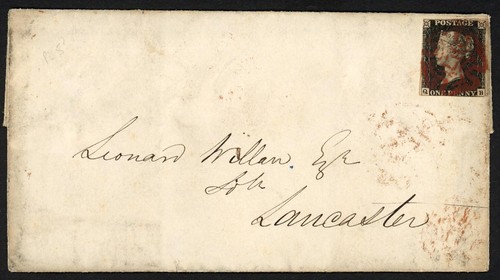 POSTAGE
ONE PENNY
Leonard Willan Esqr
Solr
Lancaster